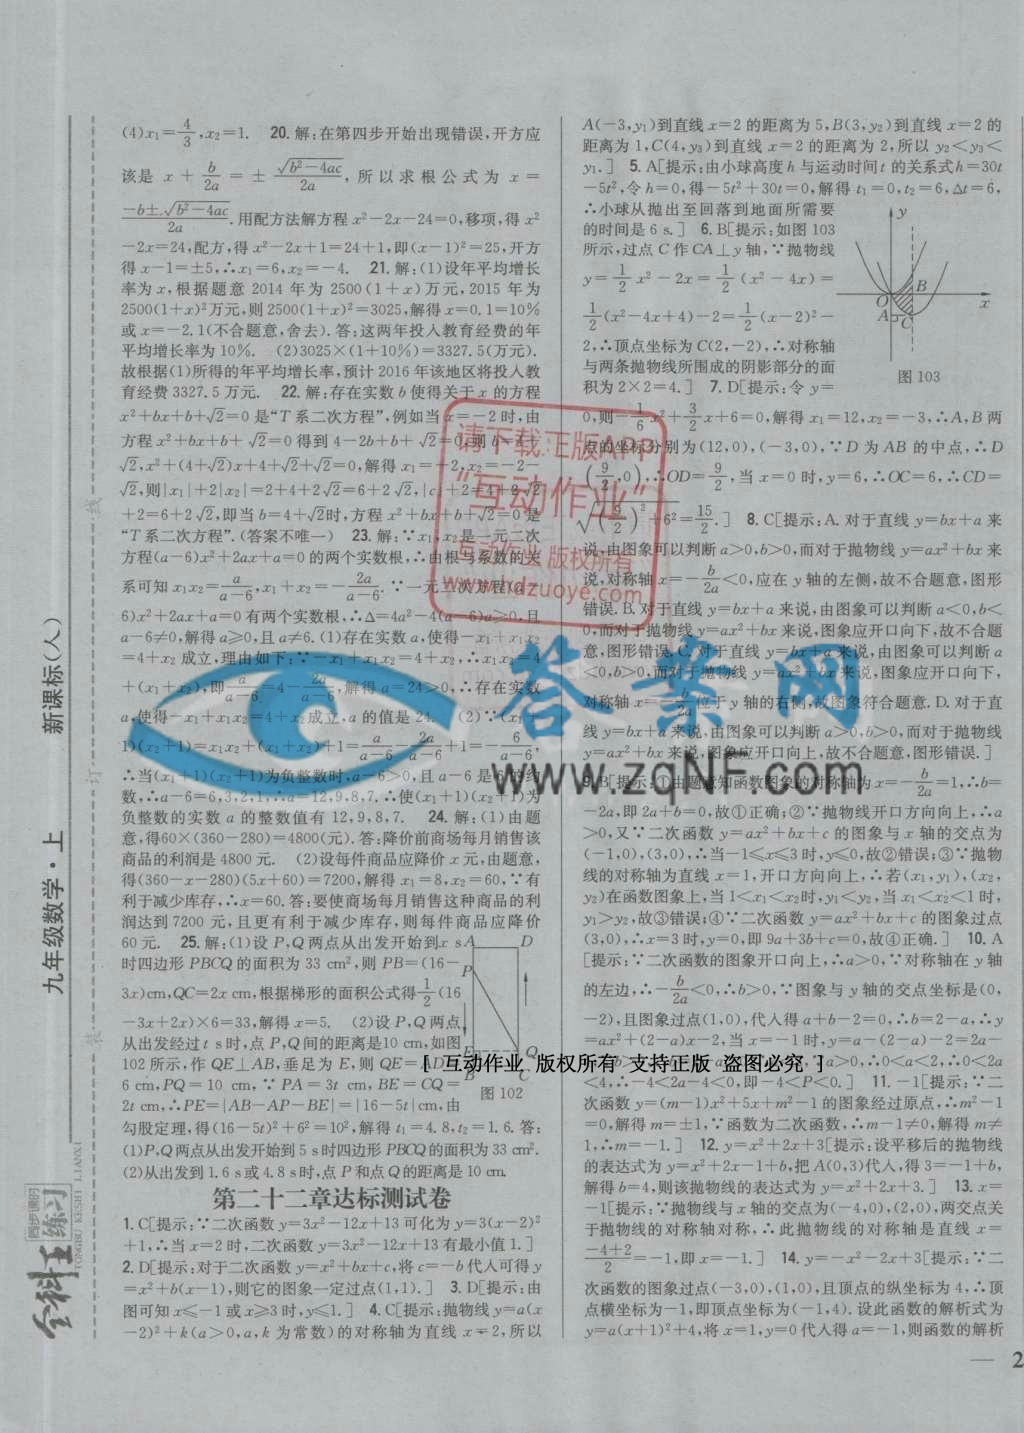 (4)x₁=4/3,x₂=1. 20.解:在第四步开始出现错误,开方应
该是 x+b/2a=±√(b²-4ac)/2a,所以求根公式为 x=
(-b±√(b²-4ac))/2a.用配方法解方程 x²-2x-24=0,移项,得 x²
-2x=24,配方,得 x²-2x+1=24+1,即(x-1)²=25,开方
得 x-1=±5,∴x₁=6,x₂=-4. 21.解:(1)设年平均增长
率为 x,根据题意 2014 年为 2500(1+x)万元,2015 年为
2500(1+x)²万元,则 2500(1+x)²=3025,解得 x=0.1=10%
或 x=-2.1(不合题意,舍去).答:这两年投入教育经费的年
平均增长率为 10%. (2)3025×(1+10%)=3327.5(万元).
故根据(1)所得的年平均增长率,预计 2016 年该地区将投入教
育经费 3327.5 万元. 22.解:存在实数 b 使得关于 x 的方程
x²+bx+b+√2=0 是“T 系二次方程”,例如当 x=-2 时,由
方程 x²+bx+b+√2=0 得到 4-2b+b+√2=0,则 b=4+
√2,x²+(4+√2)x+4+√2+√2=0,解得 x₁=-2,x₂=-2-
√2,则|x₁|+2|x₂|=2+4+2√2=6+2√2,|c|+2=4+2√2
+2=6+2√2,即当 b=4+√2时,方程 x²+bx+b+√2=0 是
“T 系二次方程”.(答案不唯一) 23.解:∵x₁,x₂是一元二次
方程(a-6)x²+2ax+a=0 的两个实数根,∴由根与系数的关
系可知 x₁x₂=a/(a-6),x₁+x₂=-2a/(a-6).∵一元二次方程(a-
6)x²+2ax+a=0 有两个实数根,∴Δ=4a²-4(a-6)a≥0,且
a-6≠0,解得 a≥0,且 a≠6.(1)存在实数 a,使得-x₁+x₁x₂
=4+x₂ 成立,理由如下:∵-x₁+x₁x₂=4+x₂,∴x₁x₂=4
+(x₁+x₂),即a/(a-6)=4-2a/(a-6),解得 a=24>0,∴存在实数
a,使得-x₁+x₁x₂=4+x₂成立,a 的值是 24. (2)∵(x₁+
1)(x₂+1)=x₁x₂+(x₁+x₂)+1=a/(a-6)-2a/(a-6)+1=-6/(a-6),
∴当(x₁+1)(x₂+1)为负整数时,a-6>0,且 a-6 是 6 的约
数,∴a-6=6,3,2,1,∴a=12,9,8,7.∴使(x₁+1)(x₂+1)为
负整数的实数 a 的整数值有 12,9,8,7. 24.解:(1)由题
意,得60×(360-280)=4800(元).答:降价前商场每月销售该
商品的利润是 4800 元. (2)设每件商品应降价 x 元,由题意,
得(360-x-280)(5x+60)=7200,解得 x₁=8,x₂=60,∵有
利于减少库存,∴x=60.答:要使商场每月销售这种商品的利
润达到 7200 元,且更有利于减少库存,则每件商品应降价
60 元. 25.解:(1)设 P,Q 两点从出发开始到x s
时四边形 PBCQ 的面积为 33 cm²,则 PB=(16-
3x)cm,QC=2x cm,根据梯形的面积公式得1/2(16
-3x+2x)×6=33,解得 x=5. (2)设 P,Q 两点
从出发经过 t s 时,点 P,Q 间的距离是10 cm,如图
102 所示,作 QE⊥AB,垂足为 E,则 QE=AD=
6 cm,PQ=10 cm,∵PA=3t cm,BE=CQ=
2t cm,∴PE=|AB-AP-BE|=|16-5t|cm,由
勾股定理,得(16-5t)²+6²=10²,解得 t₁=4.8,t₂=1.6.答:
(1)P,Q 两点从出发开始到 5 s时四边形 PBCQ 的面积为 33 cm².
(2)从出发到 1.6 s 或 4.8 s 时,点 P 和点 Q 的距离是 10 cm.
A D
P
E Q
B C
图 102
第二十二章达标测试卷
1.C[提示:∵二次函数 y=3x²-12x+13 可化为 y=3(x-2)²
+1,∴当 x=2 时,二次函数 y=3x²-12x+13 有最小值 1.]
2.D[提示:对于二次函数 y=x²+bx+c,将 c=-b 代入可得 y
=x²+b(x-1),则它的图象一定过点(1,1).] 3.D[提示:由
图可知 x≤-1 或 x≥3 时,y≤1.] 4.C[提示:抛物线 y=a(x
-2)²+k(a>0,a,k 为常数)的对称轴为直线 x=2,所以
A(-3,y₁)到直线 x=2 的距离为 5,B(3,y₂)到直线 x=2 的
距离为 1,C(4,y₃)到直线 x=2 的距离为 2,所以 y₂<y₃<
y₁.] 5.A[提示:由小球高度 h 与运动时间 t 的关系式h=30t
-5t²,令 h=0,得-5t²+30t=0,解得 t₁=0,t₂=6,Δt=6,
∴小球从抛出至回落到地面所需要
的时间是 6 s.] 6.B[提示:如图 103
所示,过点 C 作 CA⊥y 轴,∵抛物线
y=1/2x²-2x=1/2(x²-4x)=
1/2(x²-4x+4)-2=1/2(x-2)²-
2,∴顶点坐标为 C(2,-2),∴对称轴
与两条抛物线所围成的阴影部分的面
积为 2×2=4.] 7.D[提示:令 y=
y
B
O x
A C
图 103
0,则-1/6x²+3/2x+6=0,解得 x₁=12,x₂=-3,∴A,B 两
点的坐标分别为(12,0),(-3,0),∵D 为 AB 的中点,∴D
(9/2,0),∴OD=9/2,当 x=0 时,y=6,∴OC=6,∴CD=
√((9/2)²+6²)=15/2.] 8.C[提示:A.对于直线 y=bx+a 来
说,由图象可以判断 a>0,b>0,而对于抛物线 y=ax²+bx 来
说,对称轴 x=-b/2a<0,应在 y 轴的左侧,故不合题意,图形
错误.B.对于直线 y=bx+a 来说,由图象可以判断 a<0,b<
0,而对于抛物线 y=ax²+bx 来说,图象应开口向下,故不合题
意,图形错误.C.对于直线 y=bx+a 来说,由图象可以判断 a
<0,b>0,而对于抛物线 y=ax²+bx 来说,图象开口向下,
对称轴 x=-b/2a位于 y 轴的右侧,故图象符合题意.D.对于直
线 y=bx+a 来说,由图象可以判断 a>0,b>0,而对于抛物线
y=ax²+bx 来说,图象应开口向上,故不合题意,图形错误.]
9.B[提示:①由题意知函数图象的对称轴为 x=-b/2a=1,∴b=
-2a,即 2a+b=0,故①正确;②∵抛物线开口方向向上,∴a
>0,又∵二次函数 y=ax²+bx+c 的图象与 x 轴的交点为
(-1,0),(3,0),∴当-1≤x≤3 时,y≤0,故②错误;③∵抛物
线的对称轴为直线 x=1,开口方向向上,∴若(x₁,y₁),(x₂,
y₂)在函数图象上,当 1<x₁<x₂时,y₁<y₂,当 x₁<x₂<1 时,
y₁>y₂,故③错误;④∵二次函数 y=ax²+bx+c 的图象过点
(3,0),∴x=3 时,y=0,即 9a+3b+c=0,故④正确.] 10.A
[提示:∵二次函数的图象开口向上,∴a>0,∵对称轴在 y 轴
的左边,∴-b/2a<0,∴b>0,∵图象与 y 轴的交点坐标是(0,
-2),且图象过点(1,0),代入得 a+b-2=0,∴b=2-a,∴y
=ax²+(2-a)x-2,当 x=-1 时,y=a-(2-a)-2=2a-
a>0,∴0<a<2,∴0<2a
<4,∴-4<2a-4<0,即-4<P<0.] 11.-1[提示:∵二
次函数 y=(m-1)x²+5x+m²-1 的图象经过原点,∴m²-1
=0,解得 m=±1,∵函数为二次函数,∴m-1≠0,解得 m≠
1,∴m=-1.] 12.y=x²+2x+3[提示:设平移后的抛物线
的表达式为 y=x²+2x-1+b,把 A(0,3)代入,得 3=-1+b,
解得 b=4,则该抛物线的表达式为 y=x²+2x+3.] 13.x=
-1[提示:∵抛物线与 x 轴的交点为(-4,0),(2,0),两交点关
于抛物线的对称轴对称,∴此抛物线的对称轴是直线 x=
(-4+2)/2=-1,即 x=-1.] 14.y=-x²-2x+3[提示:∵二
次函数的图象过点(-3,0),(1,0),且顶点的纵坐标为 4,∴顶
点横坐标为-1,即顶点坐标为(-1,4).设此函数的解析式为
y=a(x+1)²+4,将 x=1,y=0 代入得 a=-1,则函数的解析
— 2
九年级数学·上 新课标(人)
装 订 线
全科王
四步课时
练习
TONGBU KESHI LIANXI
请下载正版APP
“互动作业”
互动作业 版权所有
www.hdzuoye.com
答案网
www.zqNF.com
[ 互动作业 版权所有 支持正版 盗图必究 ]